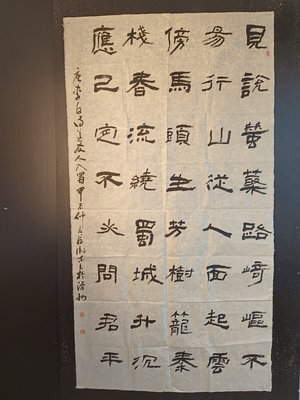 見說蠶叢路崎嶇不
易行山從人面起雲
傍馬頭生芳樹籠秦
棧春流繞蜀城升沉
應已定不必問君平
唐李白詩送友人入蜀甲